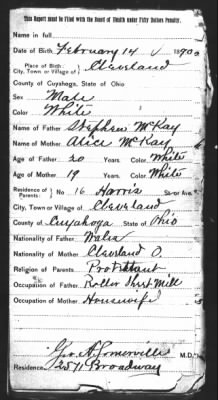 This Report must be Filed with the Board of Health under Fifty Dollars Penalty.
Name in full
Date of Birth February 14 1890
Place of Birth Cleveland
City, Town or Village of
County of Cuyahoga, State of Ohio
Sex Male
Color White
Name of Father Stephen McKay
Name of Mother Alice McKay
Age of Father 20 Years. Color White
Age of Mother 19 Years. Color White
Residence of Parents: No 16 Harris St. or Ave.
City, Town or Village of Cleveland
County of Cuyahoga State of Ohio
Nationality of Father Walia
Nationality of Mother Cleveland O.
Religion of Parents Protestant
Occupation of Father Roller Sheet Mill
Occupation of Mother Housewife
Geo. A. Somerville M.D.
Residence 2511 Broadway